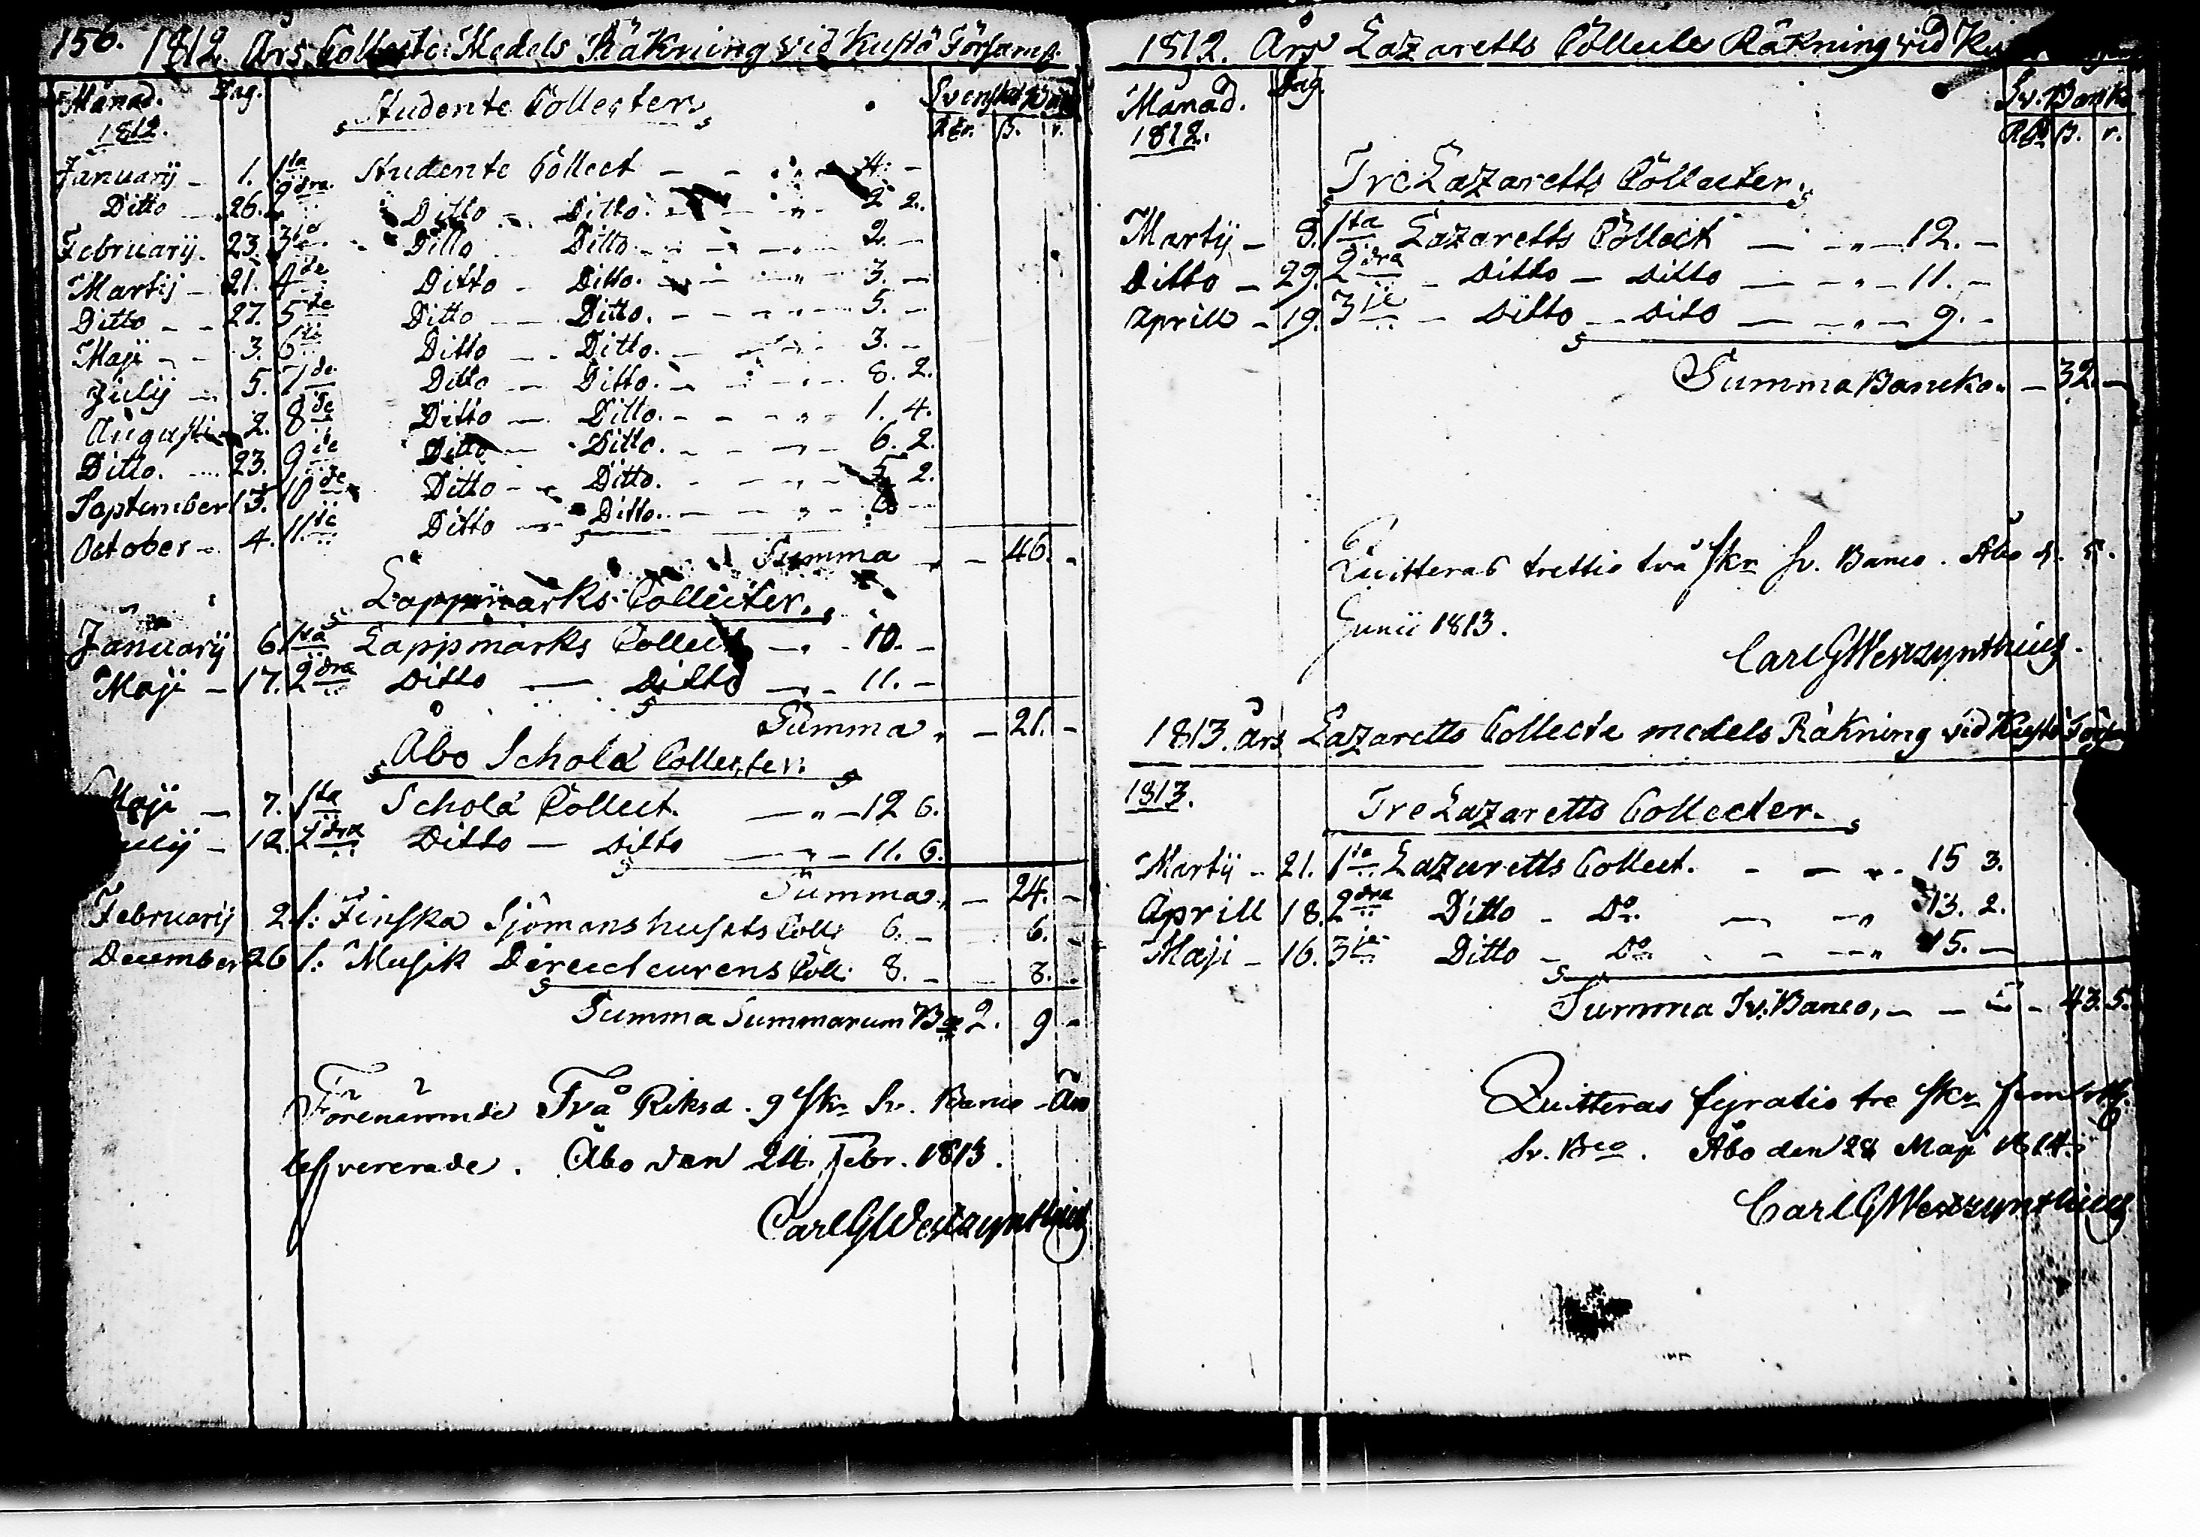 156. 1812. Års Collecte Medels Räkning vid Kustö Församl.
Månad. Dag. Studente Collecter. Svenskt Banco
1812. Rdr. ß. r.
Januarij - 1. 1sta Studente Collect - - " 4. -
Ditto - 26. 2dra. Ditto - Ditto. - - " - 2 2.
Februarij. 23. 3ie Ditto Ditto - - " - 2. -
Martij - 21. 4de Ditto - Ditto. - - " 3. -
Ditto - - 27. 5te Ditto - Ditto. - - - " - 5. -
Maji - - 3. 6te Ditto - Ditto. - - " - 3. -
Julij - 5. 7de Ditto - Ditto. - - " - 8. 2.
Augusti - 2. 8de Ditto - Ditto. - - " - 1. 4.
Ditto. - 23. 9de Ditto - Ditto. - - " - 6. 2.
September 13. 10de Ditto - Ditto. - - " - 5 2.
October - 4. 11te Ditto - Ditto. - - " - 6 -
Summa - - 46. -
Lappmarks Collecter.
Januarij 6. 1sta Lappmarks Collect - " - 10. -
Maji - 17. 2dra Ditto - Ditto - " - 11. -
Summa. - 21. -
Åbo Schola Collecter.
Maji - 7. 1sta Schola Collect. - " - 12 6.
ulij - 12. 2dra Ditto - Ditto - " - 11. 6.
Summa. - 24. -
Februarij 2. 1: Finska Sjömanshusets Coll: 6. - 6. -
December 26 1: Musik Directeurens Coll: 8. - - 8. -
Summa Summarum Bco 2. 9 -
Förenämnde Två Riksd. 9 sk. Sv. Banco
levererade. Åbo den 24. Febr. 1813.
Carl G Weszynthius
1812. Års Lazaretts Collecte Räkning vid
Månad. Dag. Sv. Banko
1812. Rdr ß. r.
Tre Lazaretts Collecter.
Martij - 8. 1sta Lazaretts Collect - - " - 12. -
Ditto - 29. 2dra - Ditto - Ditto - - " - 11. -
Aprill - 19. 3ie - Ditto - Dito - - " - 9. -
Summa Bancko. - 32. -
Quitteras trettio två skr Sv. Banco. Åbo d. 5.
Junii 1813.
Carl G Weszynthius.
1813. års Lazaretts Collecte medels Räkning vid Kustö
1813. Tre Lazaretts Collecter.
Martij - 21. 1sta Lazaretts Collect. - - " - 15 3.
Aprill 18. 2dra Ditto - Do. - - " 13. 2.
Maji - 16. 3ie Ditto - Do. - - - " 15. -
Summa Sv. Banco, - - - - 43. 5.
Quitteras fyratio tre skr fem
Sv. Bco. Åbo den 28 Maji 1814.
Carl G Weszynthius